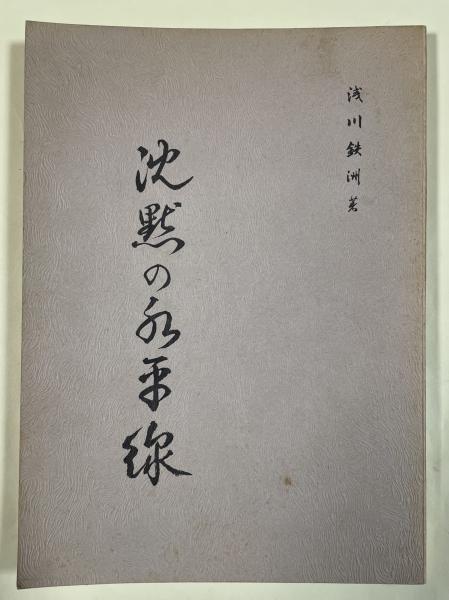 浅川鉄洲著
沈黙の水平線